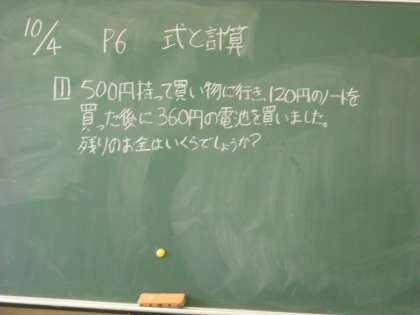 10/4 P6 式と計算
1 500円持って買い物に行き、120円のノートを
買った後に360円の電池を買いました。
残りのお金はいくらでしょうか?